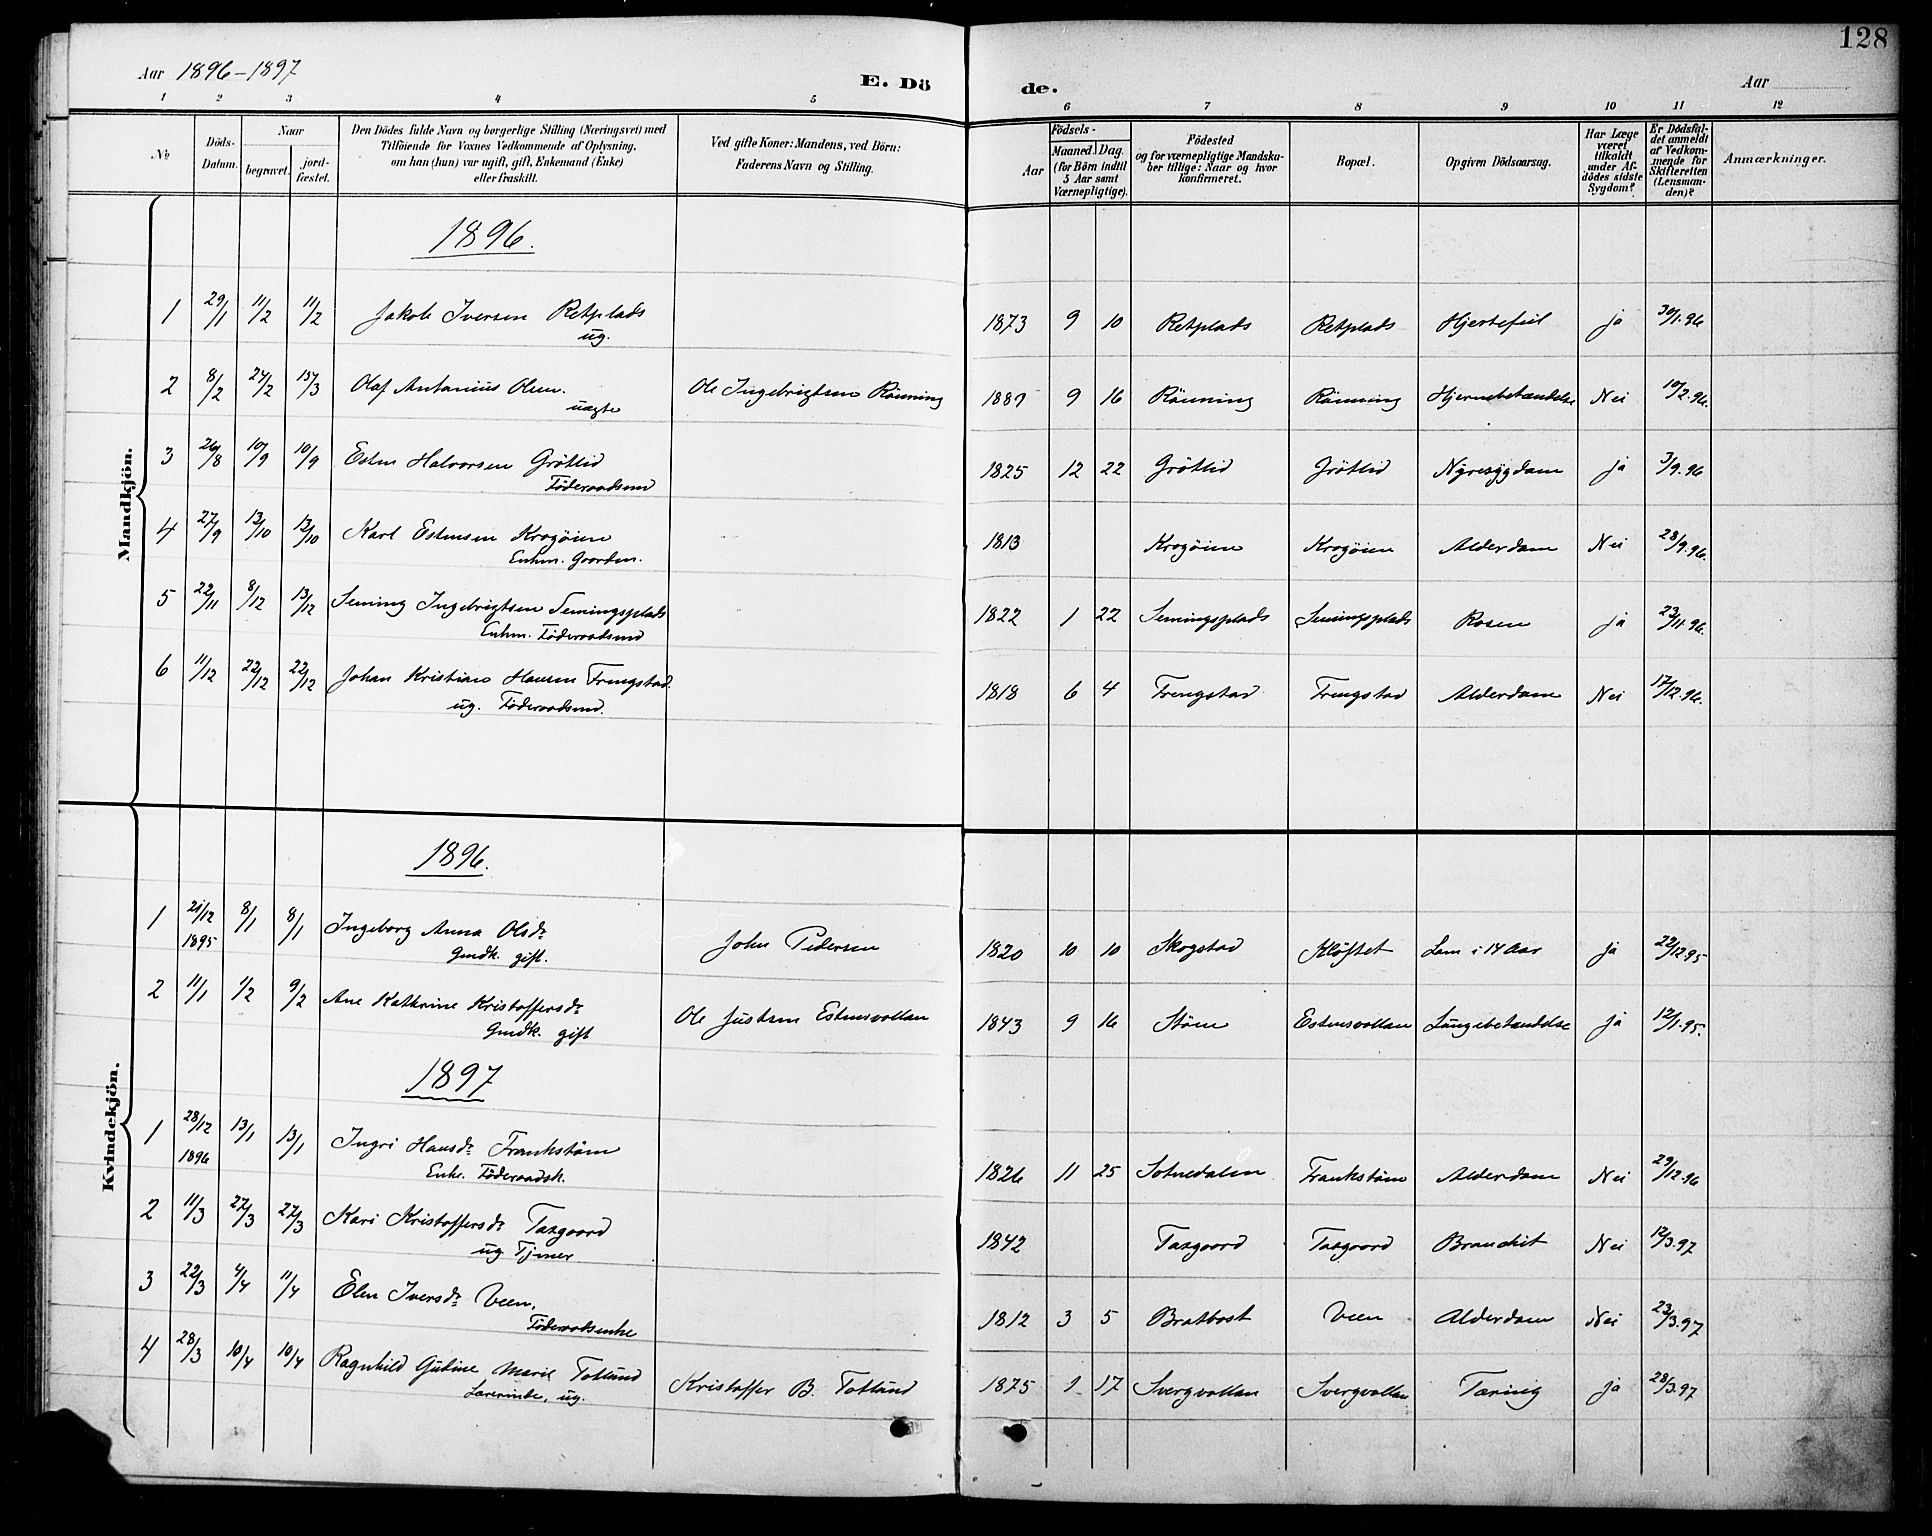 128
Aar 1896-1897
E. Dö
de.
Aar
1 2 3 4 5 6 7 8 9 10 11 12
No
Döds-Datum.
Naar
begravet.
jord-fæstet.
Den Dödes fulde Navn og borgerlige Stilling (Næringsvei) med
Tilföiende for Voxnes Vedkommende af Oplysning,
om han (hun) var ugift, gift, Enkemand (Enke)
eller fraskilt.
Ved gifte Koner: Mandens, ved Börn:
Faderens Navn og Stilling.
Födsels-
Aar
Maaned.
Dag.
(for Börn indtil
5 Aar samt
Værnepligtige).
Födested
og for værnepligtige Mandska-
ber tillige: Naar og hvor
konfirmeret.
Bopæl.
Opgiven Dödsaarsag.
Har Læge
været
tilkaldt
under Af-
dödes sidste
Sygdom?
Er Dödsfal-
det anmeldt
af Vedkom-
mende for
Skifteretten
(Lensman-
den)?
Anmærkninger.
Mandkjön.
1896.
1 29/1 11/2 11/2 Jakob Iversen Retplads 1873 9 10 Retplads Retplads Hjertefeil ja 30/1.96
ug.
2 8/2 24/2 15/3 Olaf Antonius Olsen. Ole Ingebrigtsen Rönning 9 16 Rönning Rönning Hjernebetændelse Nei 10/2.96.
uægte
3 26/8 10/9 10/9 Esten Halvorsen Gröttid 1825 12 22 Gröttid Gröttid Nyresygdom ja 3/9.96
Föderaadsmd
4 27/9 13/10 13/10 Karl Estensen Krogöien 1813 Krogöien Krogöien Alderdom Nei 28/9.96.
Enkm. Gaardm.
5 22/11 8/12 13/12 Seming Ingebrigtsen Semingsplads 1822 1 22 Semingsplads Semingsplads Rosen ja 23/11.96.
Enkm. Föderaadsmd
6 11/12 22/12 22/12 Johan Kristian Hansen Frengstad. 1818 6 4 Frengstad Frengstad Alderdom Nei 17/12.96.
ug. Föderaadsmd.
Kvindekjön.
1896.
1 21/12 8/1 8/1 Ingeborg Anna Olsdr John Pedersen 1820 10 10 Skogstad Klöftet Lam i 14 Aar ja 22/12 95
1895 Gmdk. gift.
2 11/1 1/2 9/2 Ane Kathrine Kristoffersdr Ole Justsen Estensvollan 1843 9 16 Stöen Estensvollan Lungebetændelse ja 12/1.95.
Gmdk. gift
1897
1 28/12 13/1 13/1 Ingri Hansdr Frankstöen 1826 11 25 Soknedalen Frankstöen Alderdom Nei 29/12.96
1896 Enke. Föderaadsk.
2 11/3 27/3 27/3 Kari Kristoffersdr Tasgaard 1842 Tasgaard Tasgaard Nei 12/3.97
ug. Tjener
3 22/3 4/4 11/4 Elen Iversdr Veen. 1812 3 5 Bratbost Veen Alderdom Nei 23/3.97
Föderaadsenke
4 28/3 10/4 10/4 Ragnhild Gubine Marie Totlund Kristoffer B. Totlund 1875 9 17 Svergvollan Svergvollan Tæring ja 28/3.97
Lærerinde, ug.